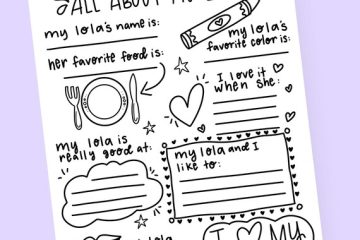 ALL ABOUT
my lola's name is:
my lola's
favorite color is:
her favorite food is:
I love it
when she:
my lola is
really good at:
my lola and I
like to:
lola
I MY